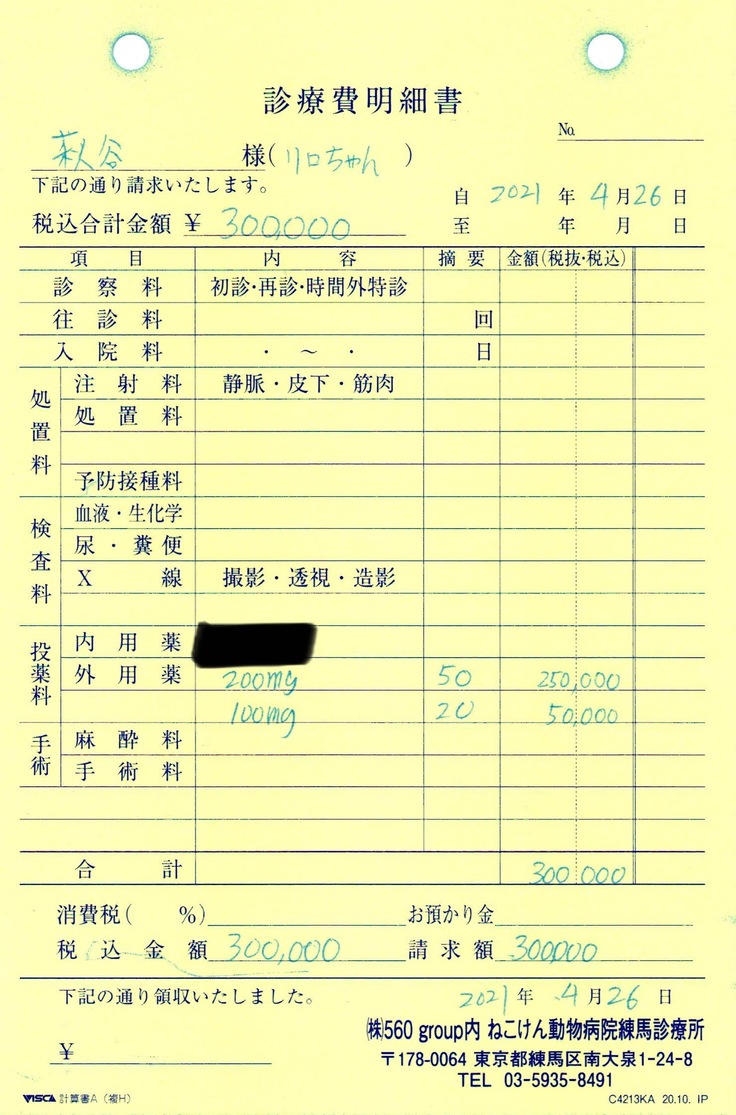 診療費明細書
No.
萩谷 様(リロちゃん)
下記の通り請求いたします。
自 2021 年 4 月 26 日
税込合計金額 ¥ 300,000
至 年 月 日
項目 内容 摘要 金額(税抜・税込)
診察料 初診・再診・時間外特診
往診料 回
入院料 ・ ~ ・ 日
処置料
注射料 静脈・皮下・筋肉
処置料
予防接種料
検査料
血液・生化学
尿・糞便
X線 撮影・透視・造影
投薬料
内用薬
外用薬 200mg 50 250,000
100mg 20 50,000
手術
麻酔料
手術料
合計 300,000
消費税( %) お預かり金
税込金額 300,000 請求額 300,000
下記の通り領収いたしました。 2021 年 4 月 26 日
¥
㈱560 group内 ねこけん動物病院練馬診療所
〒178-0064 東京都練馬区南大泉1-24-8
TEL 03-5935-8491
VISCA 計算書A (複H) C4213KA 20.10. IP